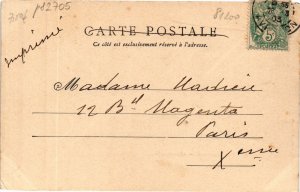 p12705
81200
Imprimé
CARTE POSTALE
Ce côté est exclusivement réservé à l'adresse.
5
Madame
12 Bd Magenta
Paris
Xeme